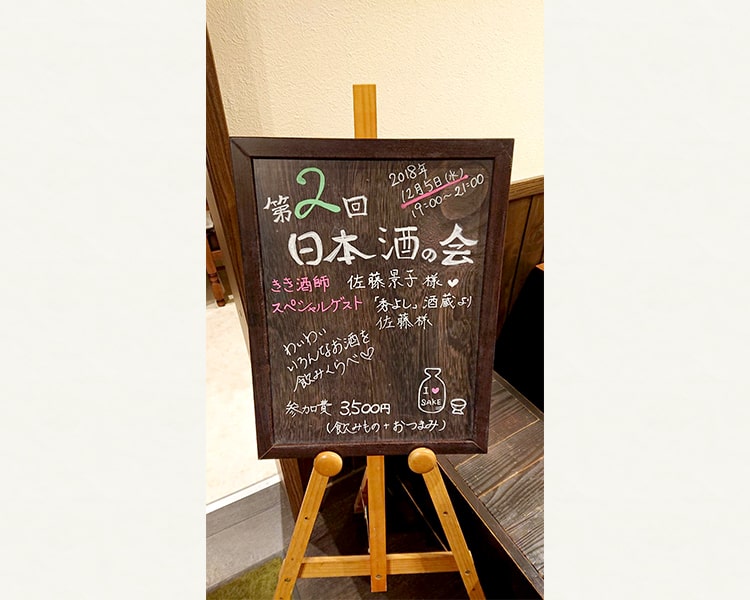 2018年
12月5日(水)
19:00〜21:00
第2回
日本酒の会
きき酒師 佐藤景子様♥
スペシャルゲスト 「秀よし」酒蔵より
佐藤様
わいわい
いろんなお酒を
飲みくらべ♡
I ♥
SAKE
参加費 3,500円
(飲みもの+おつまみ)